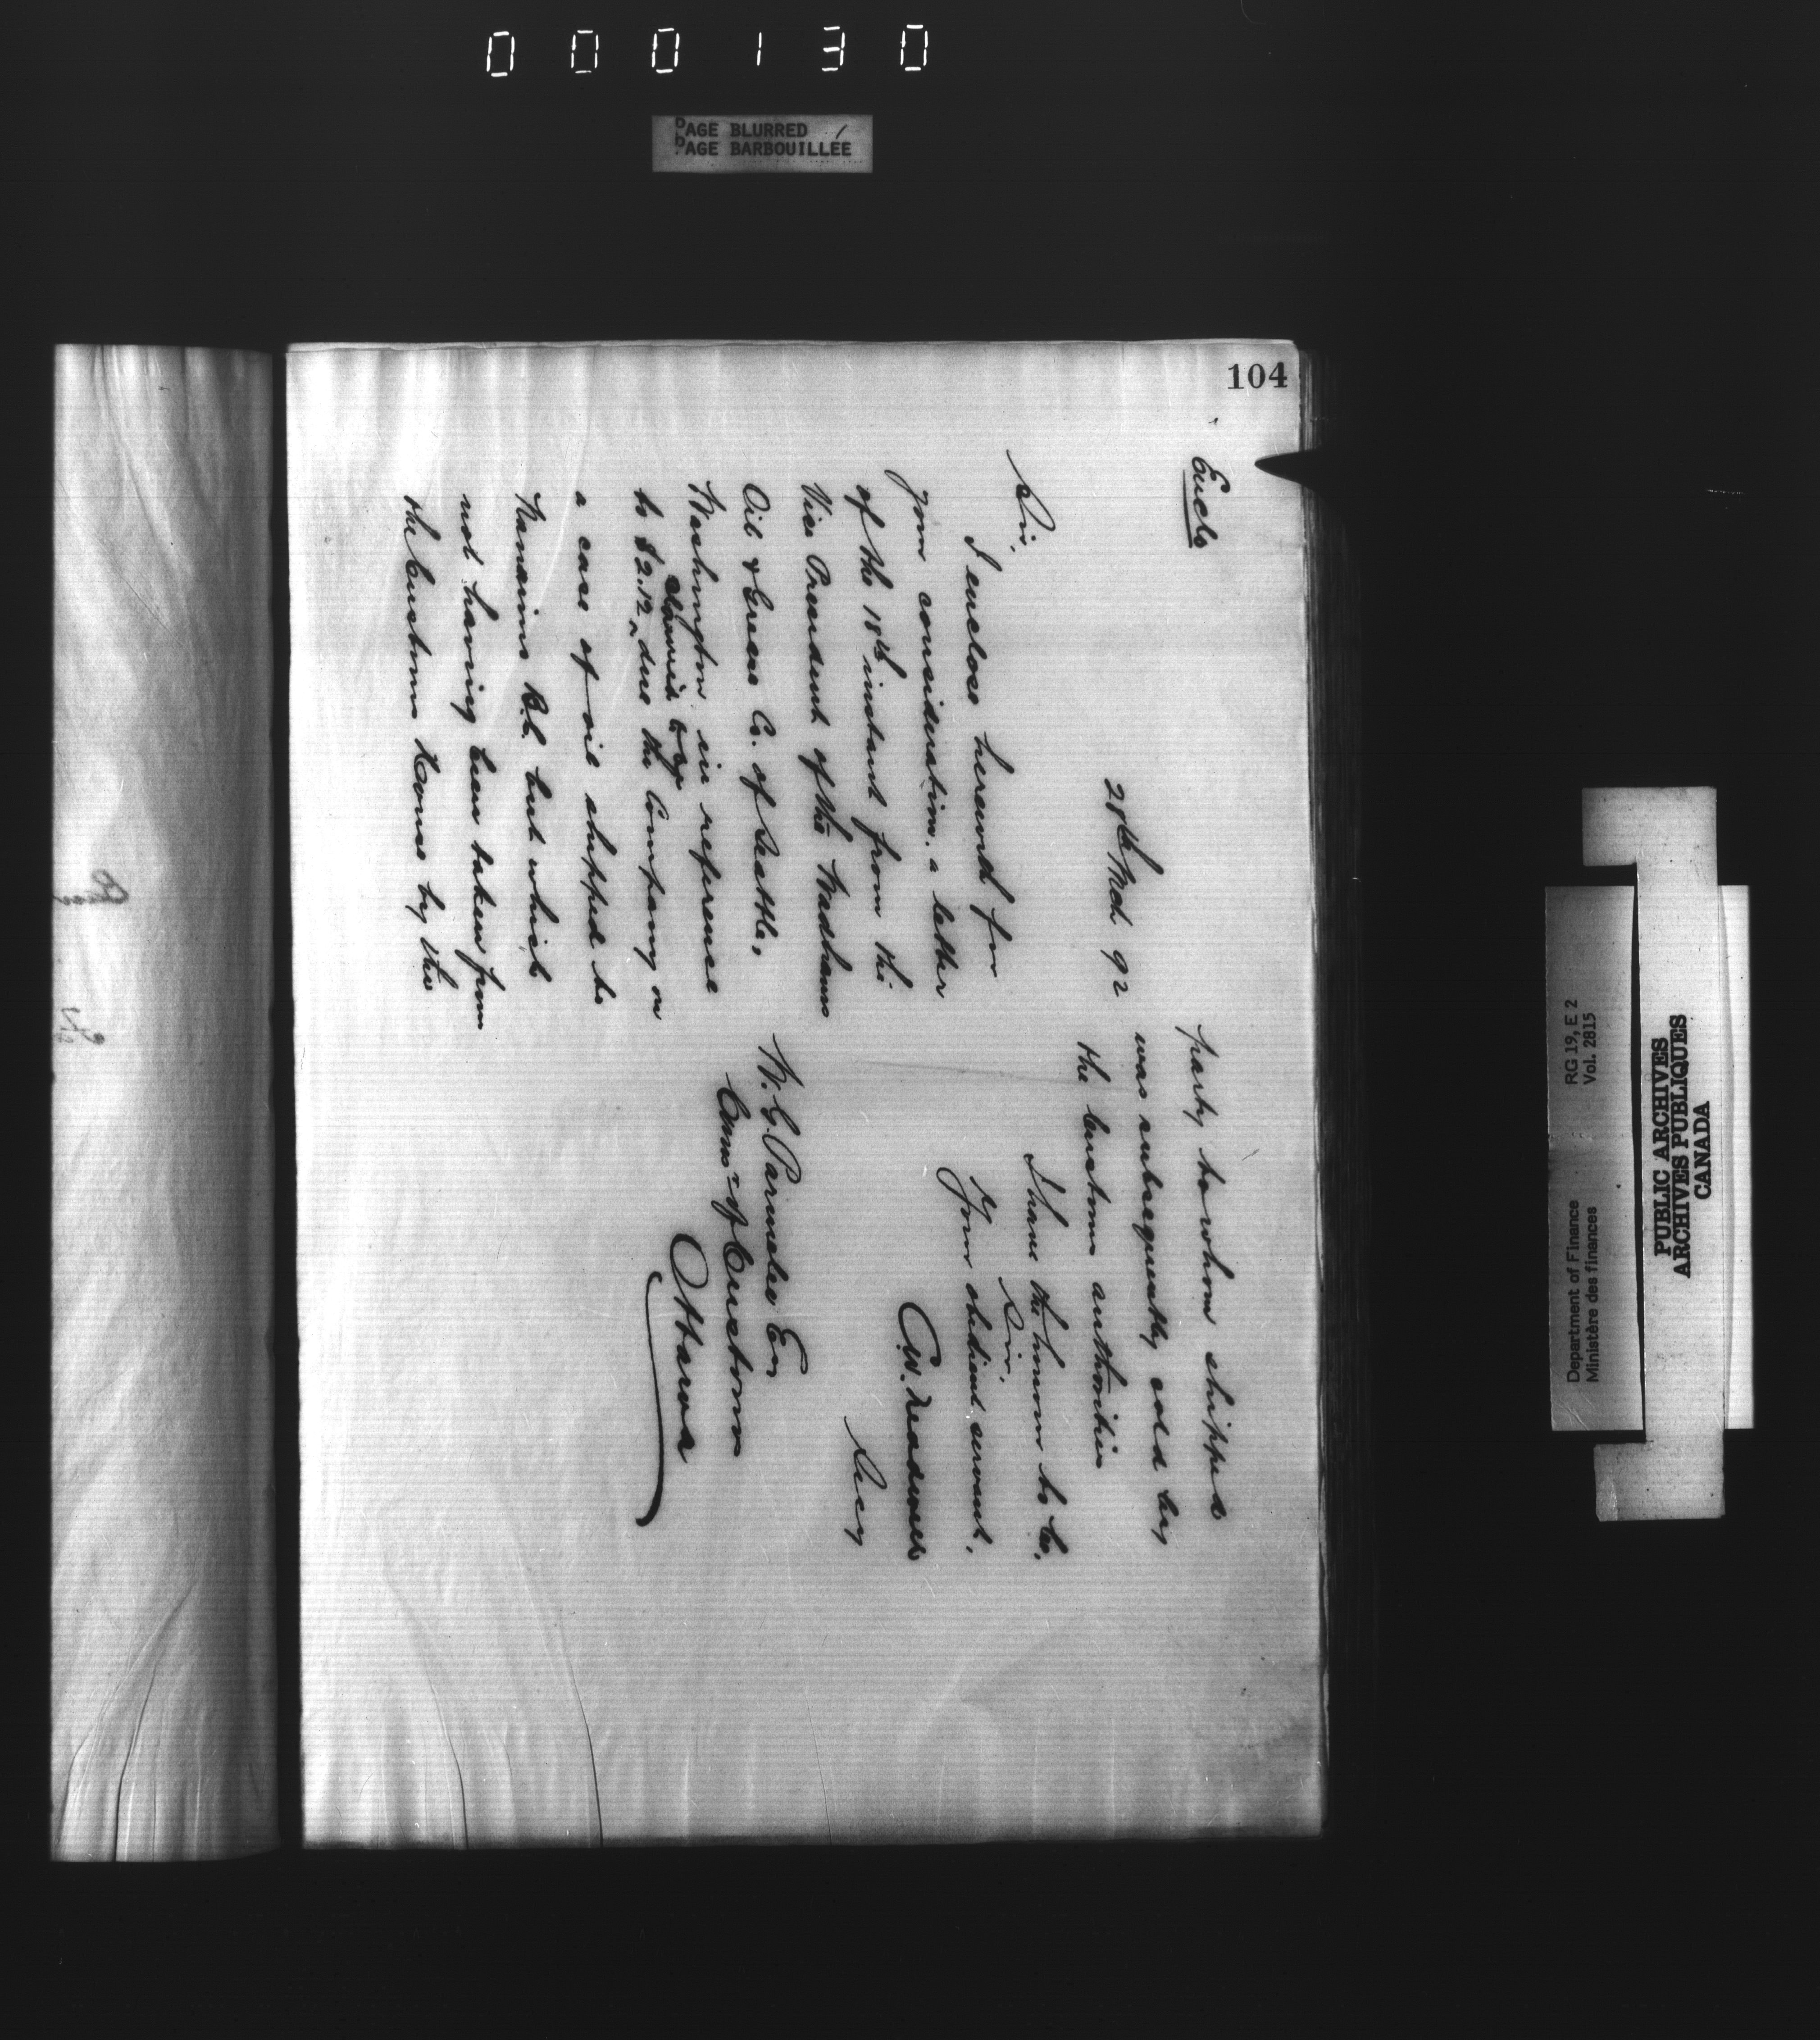 000130
PAGE BLURRED
PAGE BARBOUILLÉE
104
Enclo
28th Mch 92
Sir,
I enclose herewith for
your consideration, a letter
of the 18th instant from the
Vice President of the Wadhams
Oil & Grease Co. of Seattle,
Washington in reference
claimed to be
to $2.12 due the Company on
a case of oil shipped to
Nanaimo B.C. but which
not having been taken from
the Customs House by the
party to whom shipped
was subsequently sold by
the Customs authorities
I have the honour to be,
Sir,
Your obedient servant,
Secy
W. G. Parmelee Esq
Comr of Customs
Ottawa
Department of Finance RG 19, E 2
Ministère des finances Vol. 2815
PUBLIC ARCHIVES
ARCHIVES PUBLIQUES
CANADA